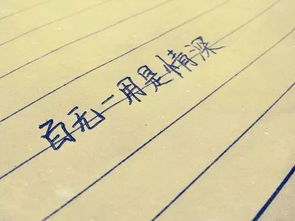 百无一用是情深